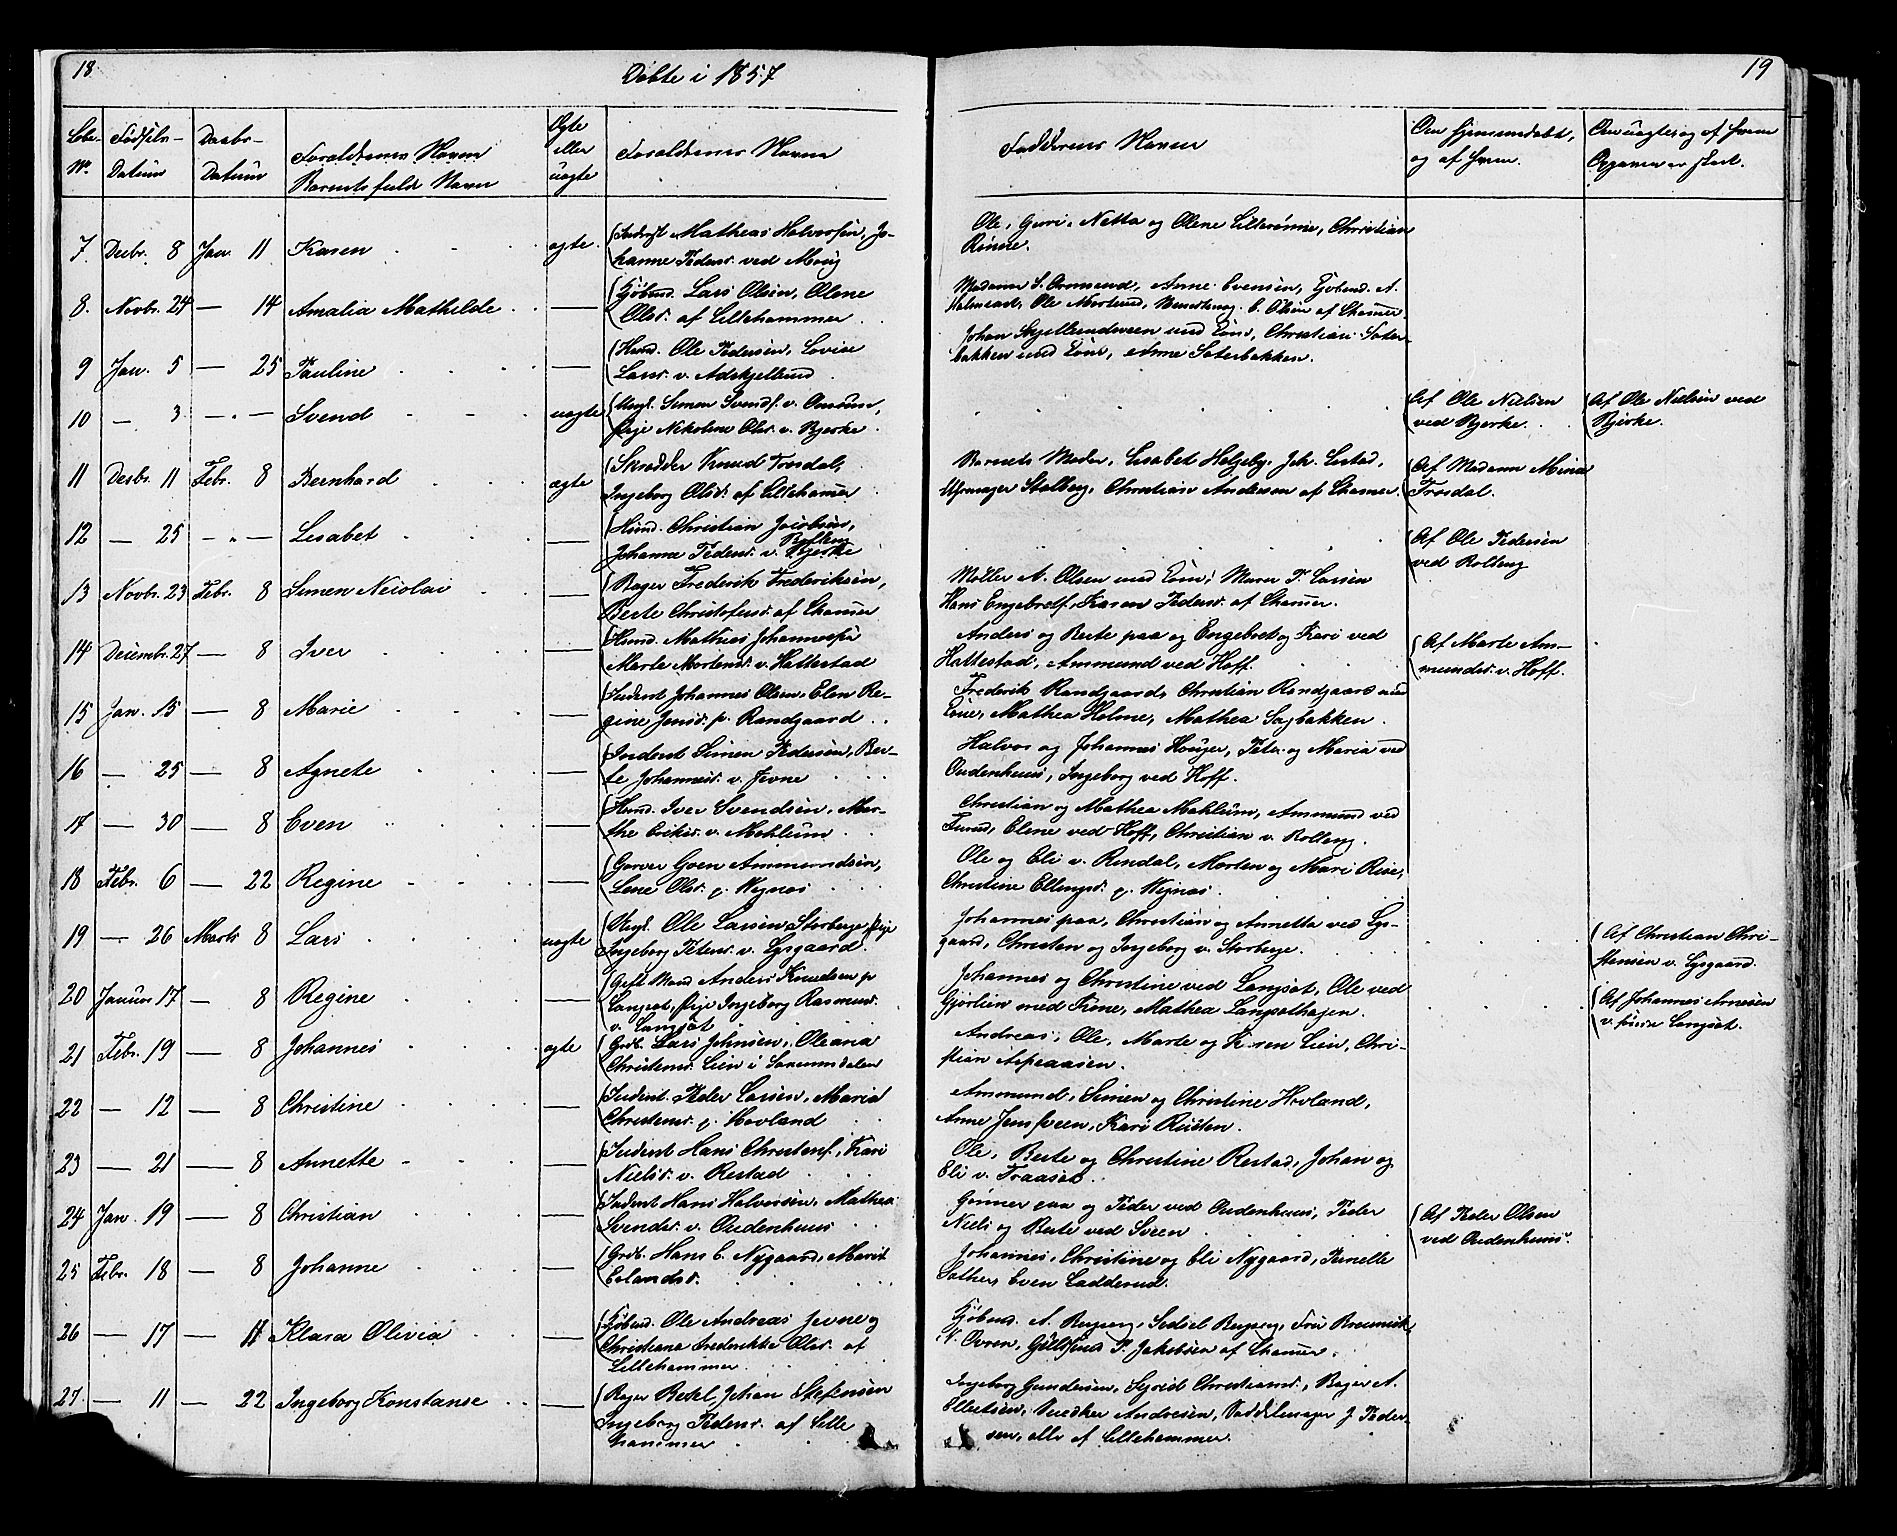 18
Døbte i 1857
19
Løbe-
No.
Fødsels-
Datum
Daabs-
Datum
Barnets fulde Navn
Ægte
eller
uægte
Forældrenes Navne
Faddernes Navne
Om hjemmedøbt,
og af hvem.
Om uægte og af hvem
Opgaven er skeet.
7 Decbr. 8 Jan. 11 Karen ægte. Inderst Mathias Halvorsen, Jo-
hanne Peders. ved Moug
Ole, Guri, Netta og Olene Lillerønne, Christian
Rønne.
8. Novbr. 24 — 14 Amalia Mathilde — Kjøbmd. Lars Olsen, Olene
Olsd. af Lillehammer
Madame S. Ormsrud, Anne Evensen, Kjøbmd. A.
Halmrast, Ole Mortend, C. Olsen af Lhamer
9 Jan. 5 — 25 Pauline — Huusm. Ole Pedersen, Lovise
Larsd. v. Adskjellund
Johan Skjellunderen med Kone, Christian Sæter-
bakken med Kone, Anne Sæterbakken.
10 — 3 — „ — Svend uægte Ungk. Simen Svends. v. Onsum,
Pige Nikoline Olsd. v. Bjerke
Af Ole Nielsen
ved Bjerke.
Af Ole Nielsen ved
Bjerke.
11 Desbr. 11 Febr. 8 Bernhard ægte Skrædder Knud Trosdal,
Ingeborg Olsd. af Lillehamer
Barnets Moder, Lisabet Helgeby, Joh. Lestad,
Uhrmager Stalberg, Christian Andersen af Lhamer.
Af Madame Mina
Trosdal.
12 — 25 — „ — Lisabet — Huusm. Christian Jacobsen,
Johanne Pedersd. v. Bjerke
Af Ole Pedersen
ved Rolteng
13 Novbr. 23 Febr. 8 Simen Nicolai — Bager Frederik Frederiksen,
Berte Christofersd. af Lhamer
Møller A. Olsen med Kone, Maren P. Larsen
Hans Engebretf., Karen Pedersd. af Lhamer.
14 Decembr. 27 — 8 Iver — Huusm. Mathias Johannessen
Marte Mortensd. v. Hattestad
Anders og Berte paa og Engebret og Kari ved
Hattestad, Ammund ved Hoff.
Af Marte Am-
mundsd. v. Hoff.
15 Jan. 15 — 8 Marie — Inderst Johannes Olsen, Elen Re-
gine Jensd. p. Randgaard
Frederik Randgaard, Christian Randgaard med
Kone, Mathea Holme, Mathea Sagbakken.
16 — 25 — 8 Agnete — Inderst Simen Pedersen, Ber-
te Johannesd. v. Jevne
Halvor og Johannes Houger, Peter og Maria ved
Oudenhuus, Ingeborg ved Hoff.
17 — 30 — 8 Even — Huusm. Iver Svendsen, Mar-
the Eriksd. v. Mæhlum
Christian og Mathea Mæhlum, Ammund ved
Elene ved Hoff, Christian v. Rolteng.
18 Febr. 6 — 22 Regine — Garver Goen Ammundsen,
Lene Olsd. p. Vignæs
Ole og Eli v. Rindal, Morten og Mari Rise,
Christine Ellingsd. p. Vignæs.
19 — 26 Marts 8 Lars uægte Ungk. Ole Larsen Storberge, Pige
Ingeborg Pedersd. v. Lysgaard.
Johannes paa, Christian og Annetta ved Lys-
gaard, Christen og Ingeborg v. Storberge.
Af Christian Chri-
stensen v. Lysgaard.
20 Januar 17 — 8 Regine Gift Mand Anders Knudsen p.
Langset, Pige Ingeborg Rasmusd.
v. Langset
Johannes og Christine ved Langset, Ole ved
Gjørlien med Kone, Mathea Langsethagen.
Af Johannes Arnesen
v. søndre Langset.
21 Febr. 19 — 8 Johannes ægte Grdb. Lars Johnsen, Oleana
Christensd. Lien i Saxumdalen
Andreas, Ole, Marte og Karen Lien, Chri-
stian Aspeaasen.
22 — 12 — 8 Christine — Inderst Peder Larsen, Maria
Christensd. p. Hovland
Ammund, Simen og Christine Hovland,
Anne Jensveen, Kari Rusten.
23 — 21 — 8 Annette — Inderst Hans Christenf., Kari
Nielsd. v. Restad
Ole, Berte og Christine Restad, Johan og
Eli v. Traaset.
24 Jan. 19 — 8 Christian — Inderst Hans Halvorsen, Mathea
Svendsd. v. Oudenhuus
Gunner paa og Peder ved Oudenhuus, Peder
Niels og Berte ved Sveen
Af Peder Olsen
ved Oudenhuus.
25 Febr. 18 — 8 Johanne — Grdb. Hans C. Nygaard, Marit
Erlandsd.
Johannes, Christine og Eli Nygaard, Pernille
Sæther, Even Ladderud.
26 — 17 — 11 Klara Olivia — Kjøbmd. Ole Andreas Jevne og
Christiana Frederikke Olsd. af
Lillehammer
Kjøbmd. A. Bergseng, Sedsel Bergseng, Frü
N. Ovren, Guldsmd P. Jakobsen af Lhamer.
27 — 11 — 22 Ingeborg Konstanse — Bager Betel Johan Stefensen
Ingeborg Pedersd. af Lille
hammer
Ingeborg Gundersen, Sigrid Christiansd., Bager A.
Ellertsen, Snedker Andresen, Saddelmager J. Peder-
sen, alle af Lillehammer.